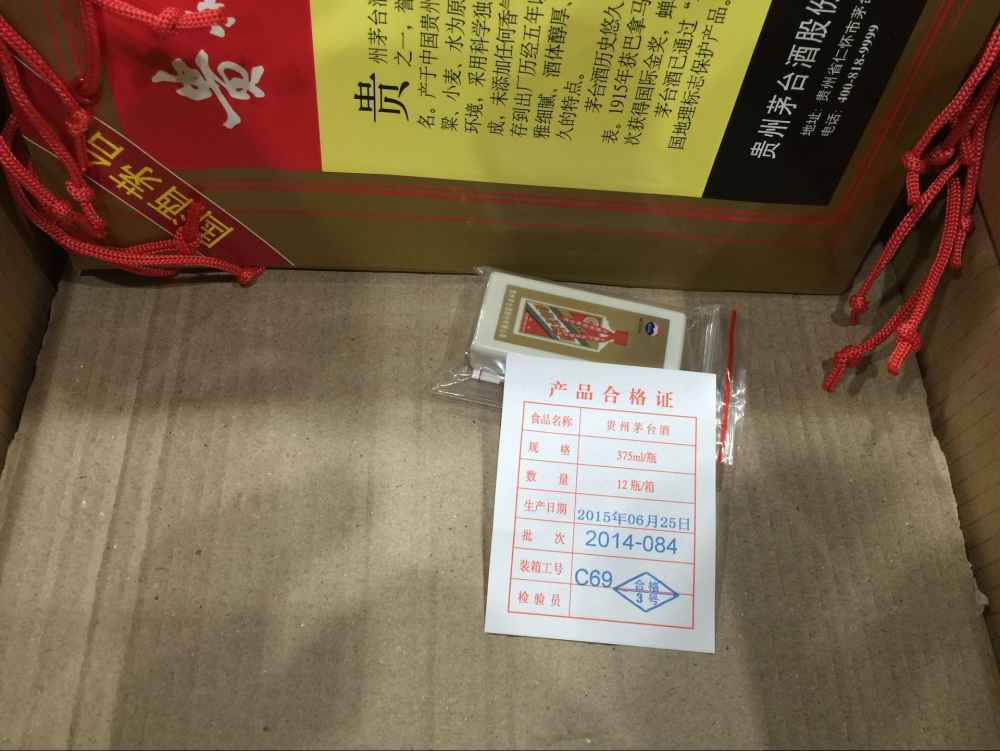 贵州
国酒茅台
贵州茅台酒
之一，誉
名。产于中国贵州
粱、小麦、水为原
环境，采用科学独
成，未添加任何香
存到出厂历至五年以
雅细腻、酒体醇厚、
久的特点。
茅台酒历史悠久
表。1915年获巴拿马
次获得国际金奖，蝉
茅台酒已通过
国地理标志保护产品。
贵州茅台酒股份
地址：贵州省仁怀市茅台
电话：400-818-9999
产品合格证
食品名称 贵州茅台酒
规格 375ml/瓶
数量 12瓶/箱
生产日期 2015年06月25日
批次 2014-084
装箱工号 C69
检验员 合格
3号